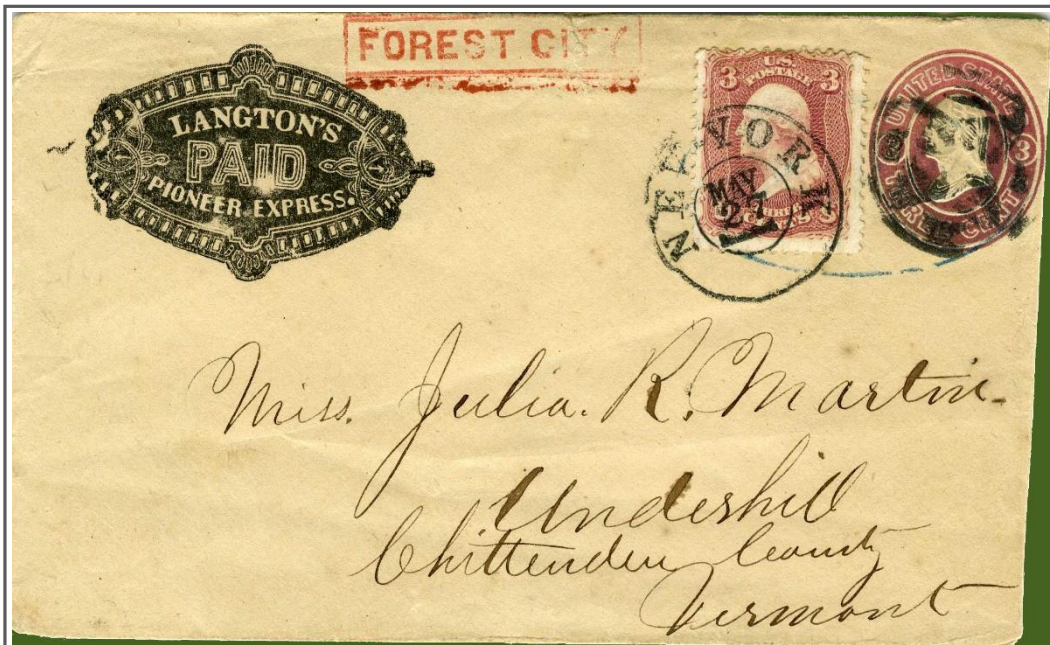 FOREST CITY
LANGTON'S
PAID
PIONEER EXPRESS.
U.S.
POSTAGE
3 3
3 3
NEW YORK
MAY
27
UNITED STATES
3 3
THREE CENTS
Miss. Julia. R. Martin-
Underhill
Chittenden County
Vermont